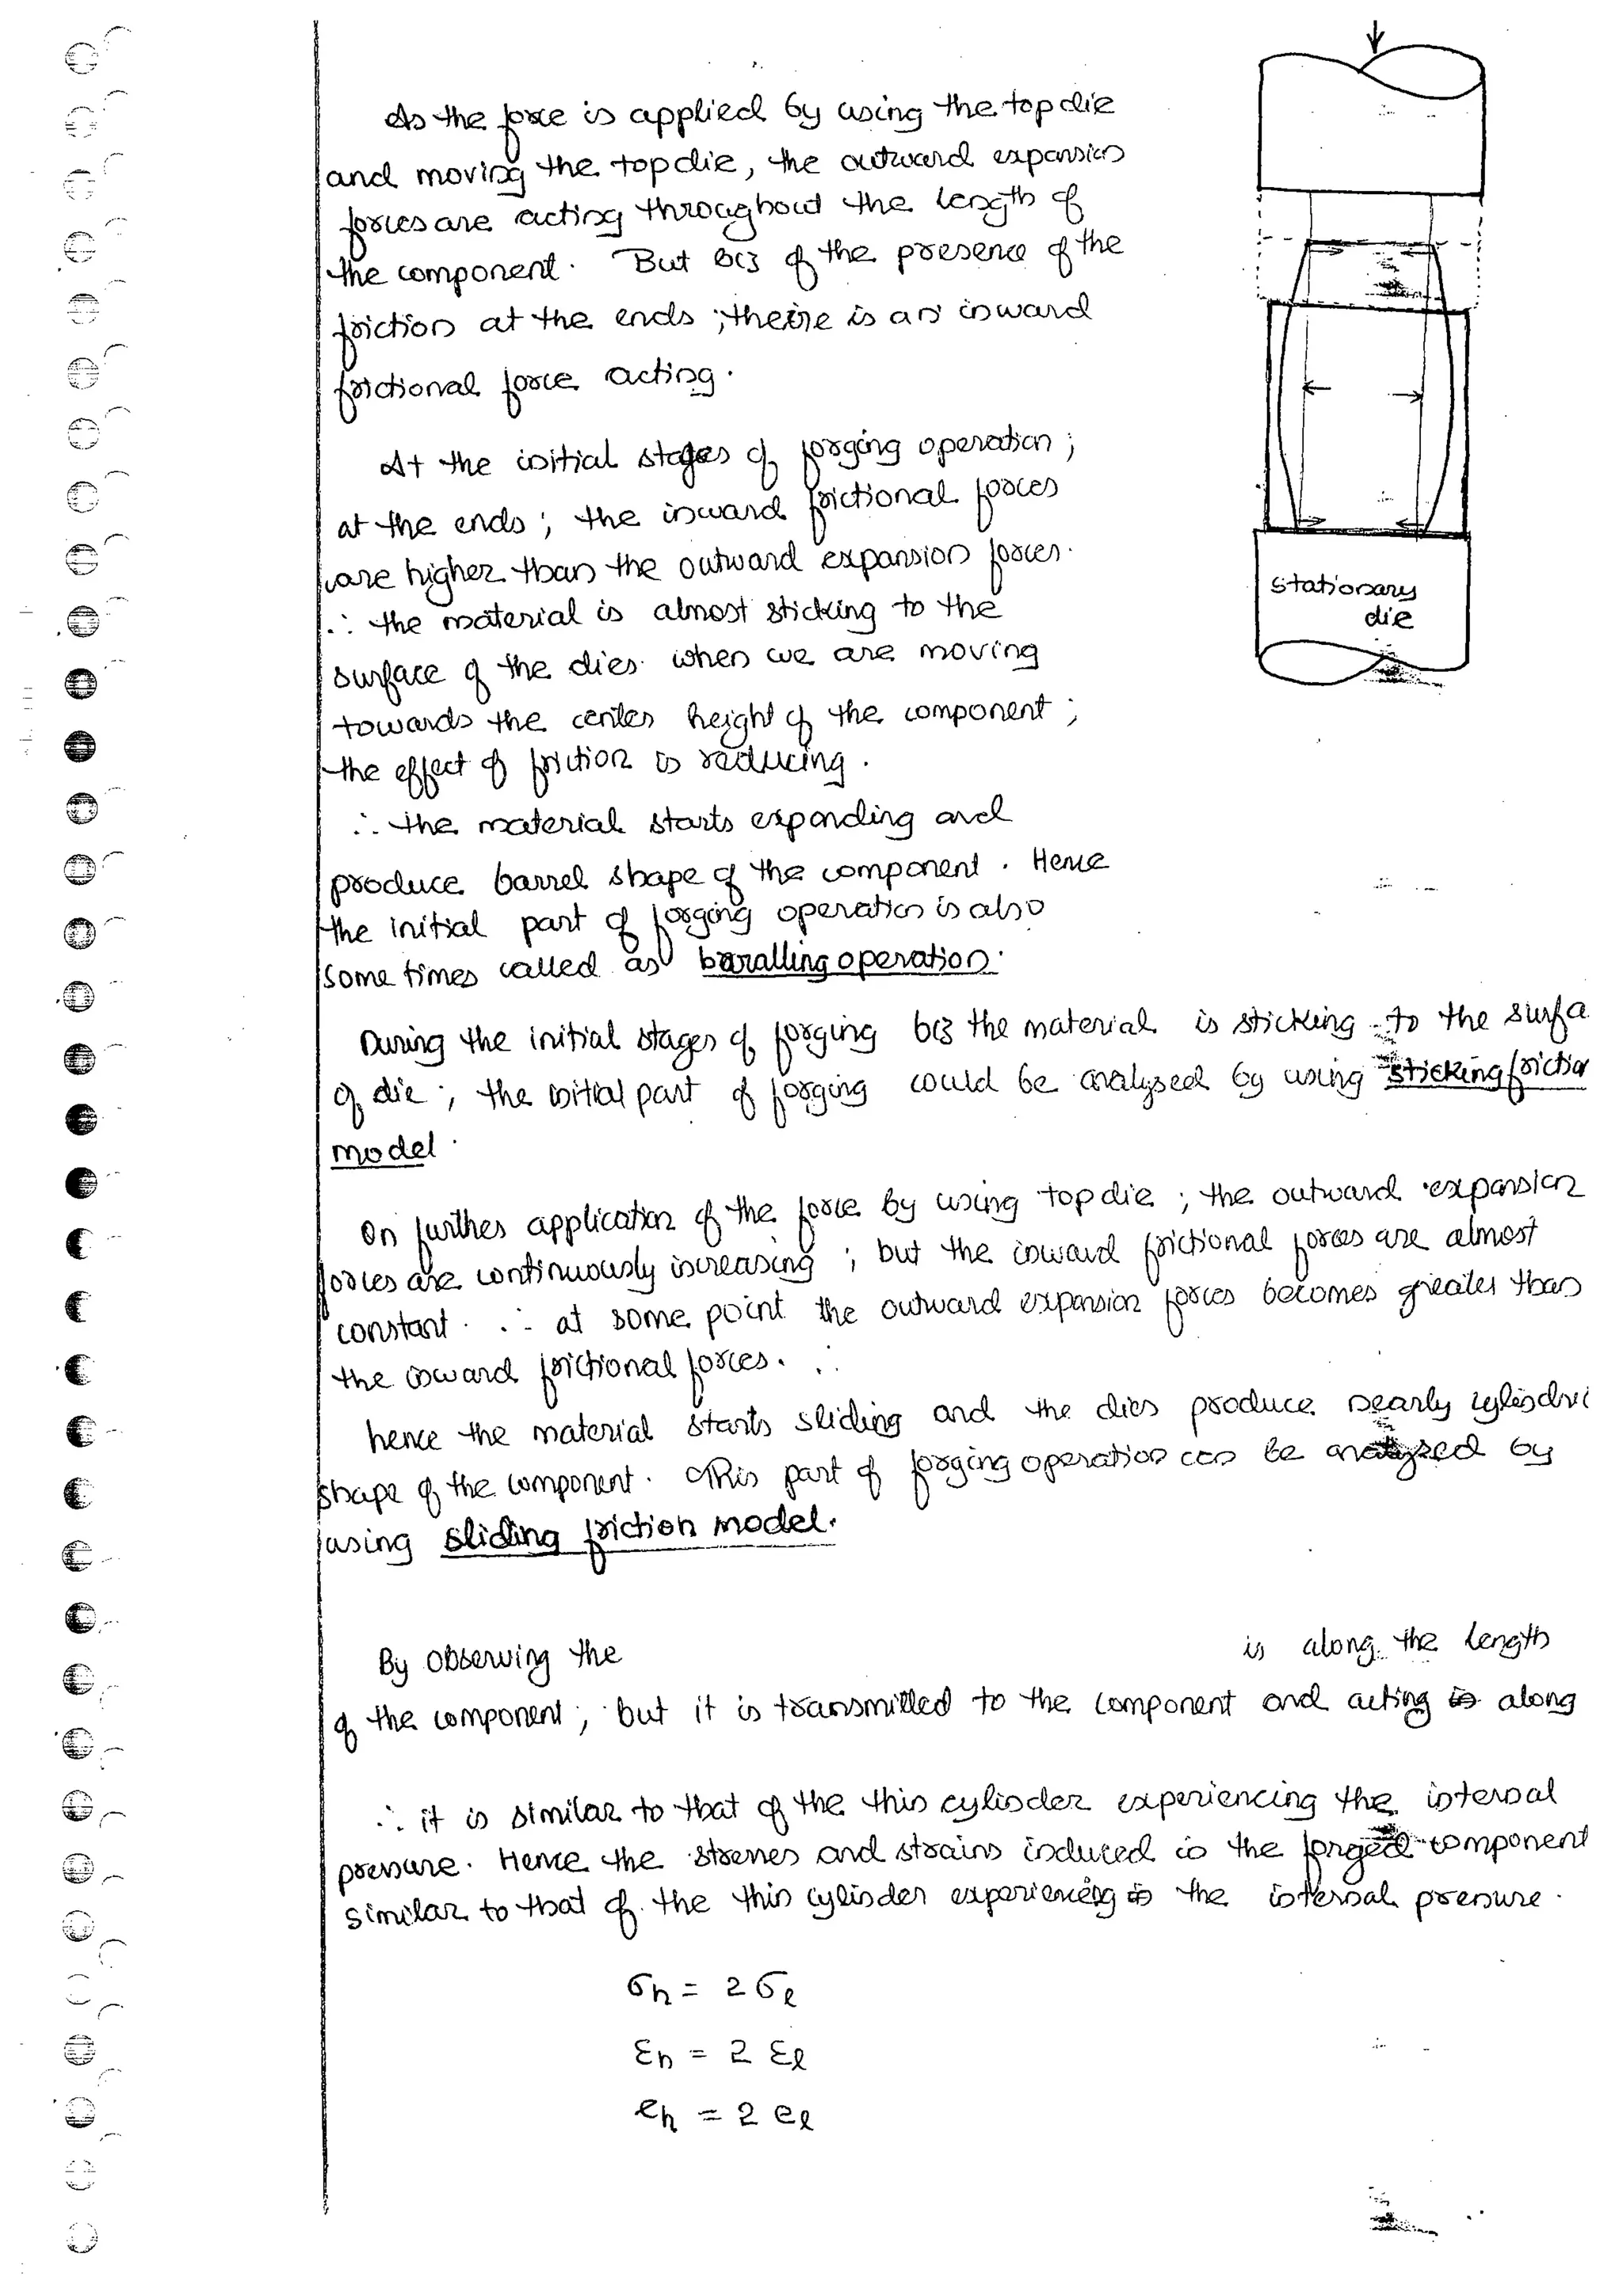 As the force is applied by using the top die
and moving the top die, the outward expansion
forces are acting throughout the length of
the component. But bcz of the presence of the
friction at the ends ; there is an inward
frictional force acting.
At the initial stages of forging operation ;
at the ends ; the inward frictional forces
are higher than the outward expansion forces.
∴ the material is almost sticking to the
surface of the dies. when we are moving
towards the center height of the component ;
the effect of friction is reducing.
∴ the material starts expanding and
produce barrel shape of the component. Hence
the initial part of forging operation is also
some times called as baralling operation.
stationary
die
During the initial stages of forging bcz the material is sticking to the surfa
of die ; the initial part of forging could be analysed by using sticking friction
model.
On further application of the force by using top die ; the outward expansion
forces are continuously increasing ; but the inward frictional forces are almost
constant. ∴ at some point the outward expansion forces becomes greater than
the inward frictional forces. ∴
hence the material starts sliding and the dies produce nearly cylindri
shape of the component. This part of forging operation can be analyzed by
using sliding friction model.
By observing the is along the length
of the component ; but it is transmitted to the component and acting is along
∴ it is similar to that of the thin cylinder experiencing the internal
pressure. Hence the stresses and strains induced in the forged component
similar to that of the thin cylinder experiencing in the internal pressure.
σh = 2 σl
εh = 2 εl
eh = 2 el